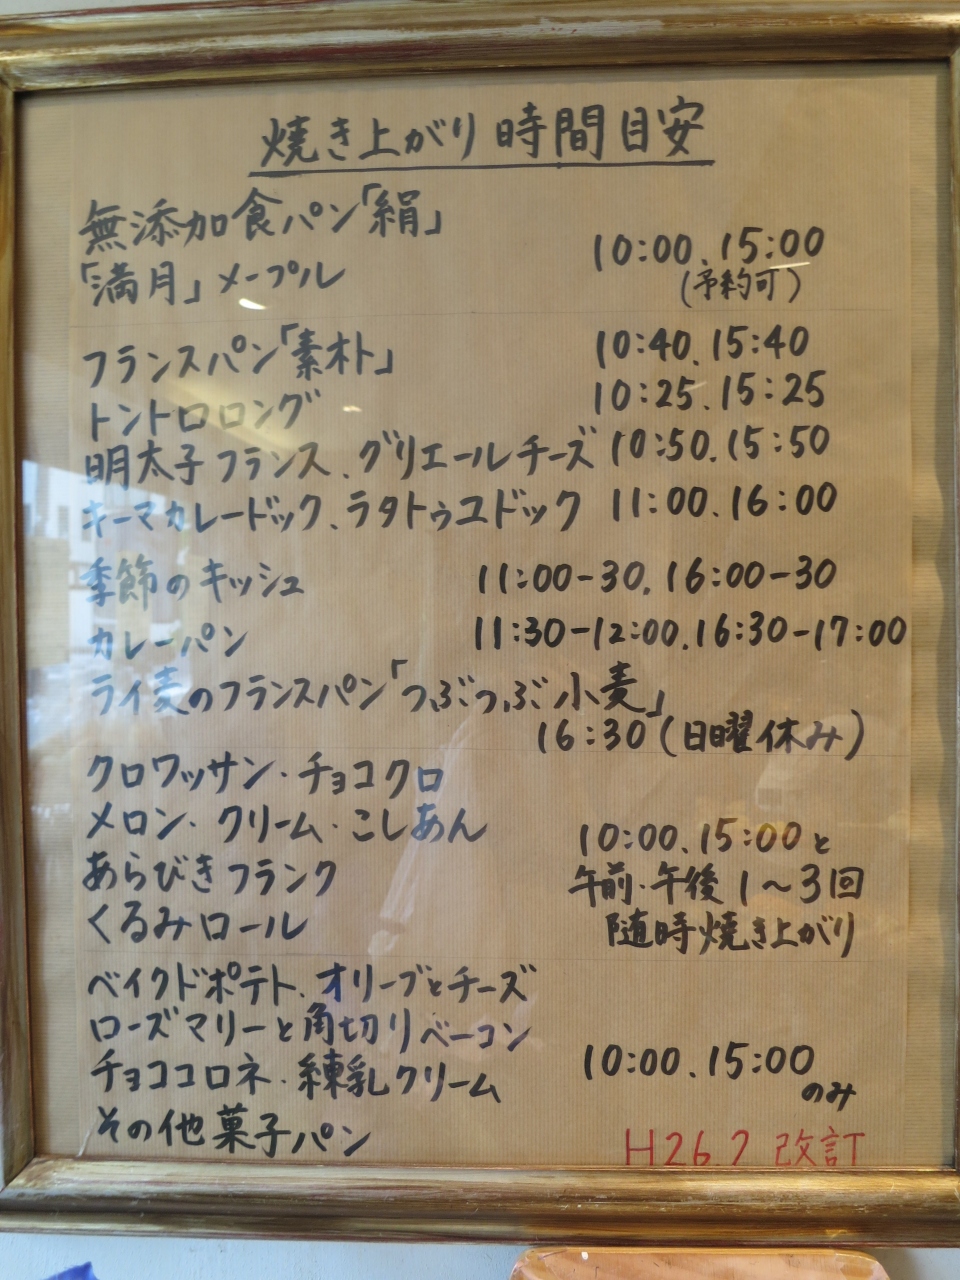 焼き上がり時間目安
無添加食パン「絹」
「満月」メープル
10:00、15:00
(予約可)
フランスパン「素朴」 10:40、15:40
トントロロング 10:25、15:25
明太子フランス、グリエールチーズ 10:50、15:50
キーマカレードック、ラタトゥユドック 11:00、16:00
季節のキッシュ 11:00-30、16:00-30
カレーパン 11:30-12:00、16:30-17:00
ライ麦のフランスパン「つぶつぶ小麦」
16:30(日曜休み)
クロワッサン・チョコクロ
メロン・クリーム・こしあん
あらびきフランク
くるみロール
10:00、15:00と
午前・午後 1〜3回
随時焼き上がり
ベイクドポテト、オリーブとチーズ
ローズマリーと角切りベーコン
チョココロネ・練乳クリーム
その他菓子パン
10:00、15:00
のみ
H26.7 改訂